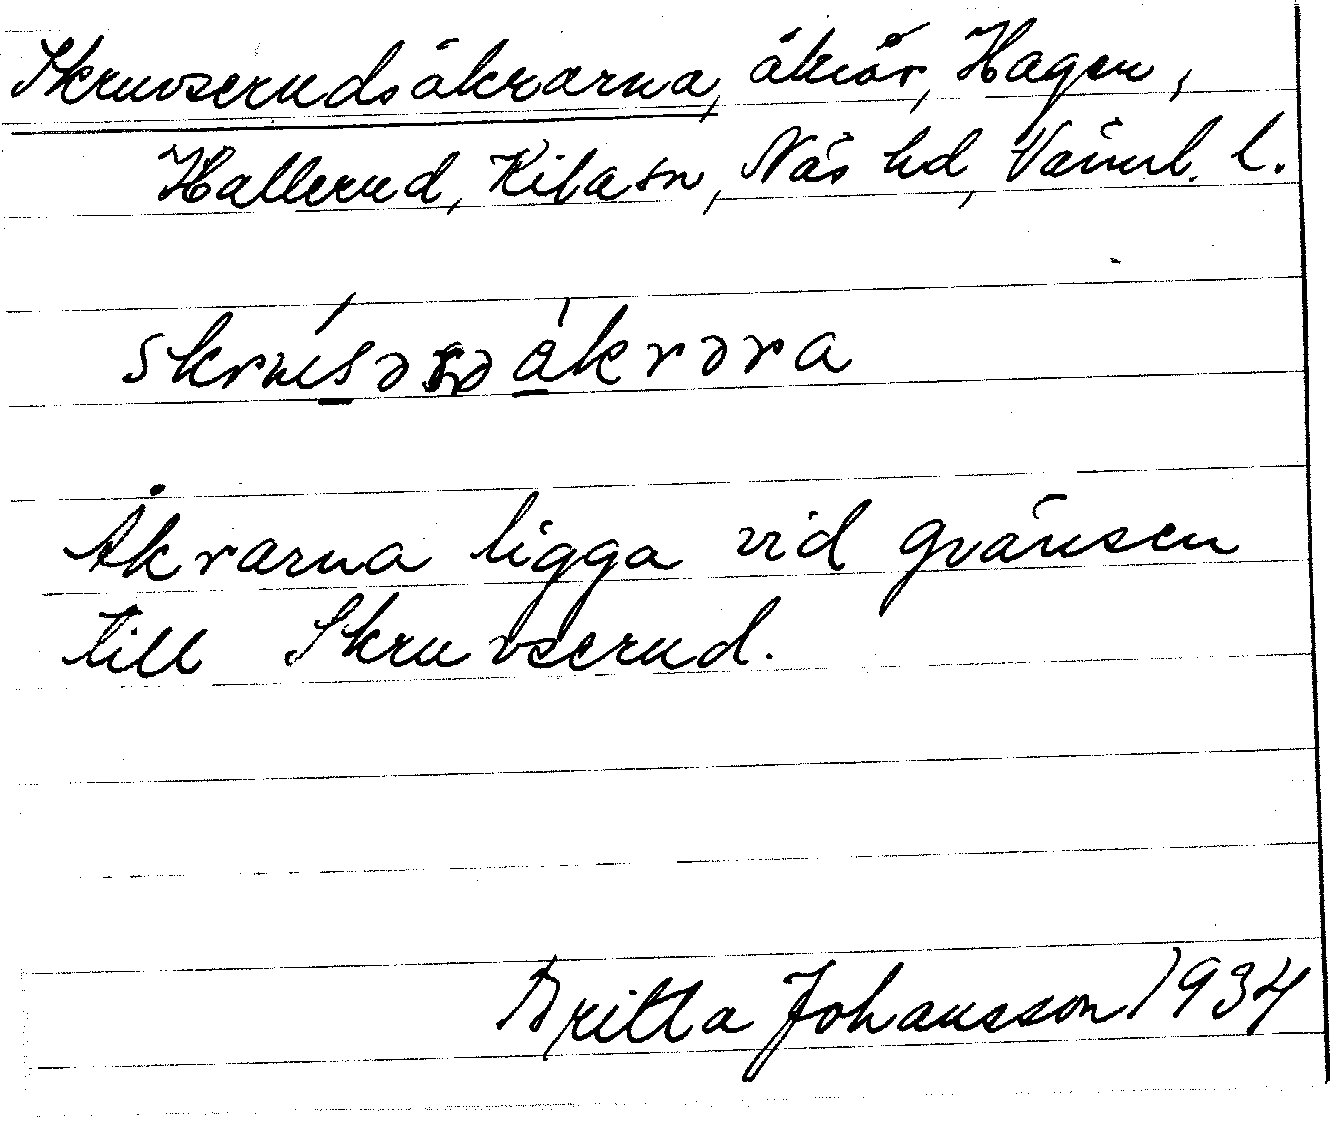 Skruvserudsåkrarna, åkrar, Hagen,
Hallerud, Kila sn, Näs hd, Värml. l.
Åkrarna ligga vid gränsen
till Skruvserud.
Britta Johansson 1934